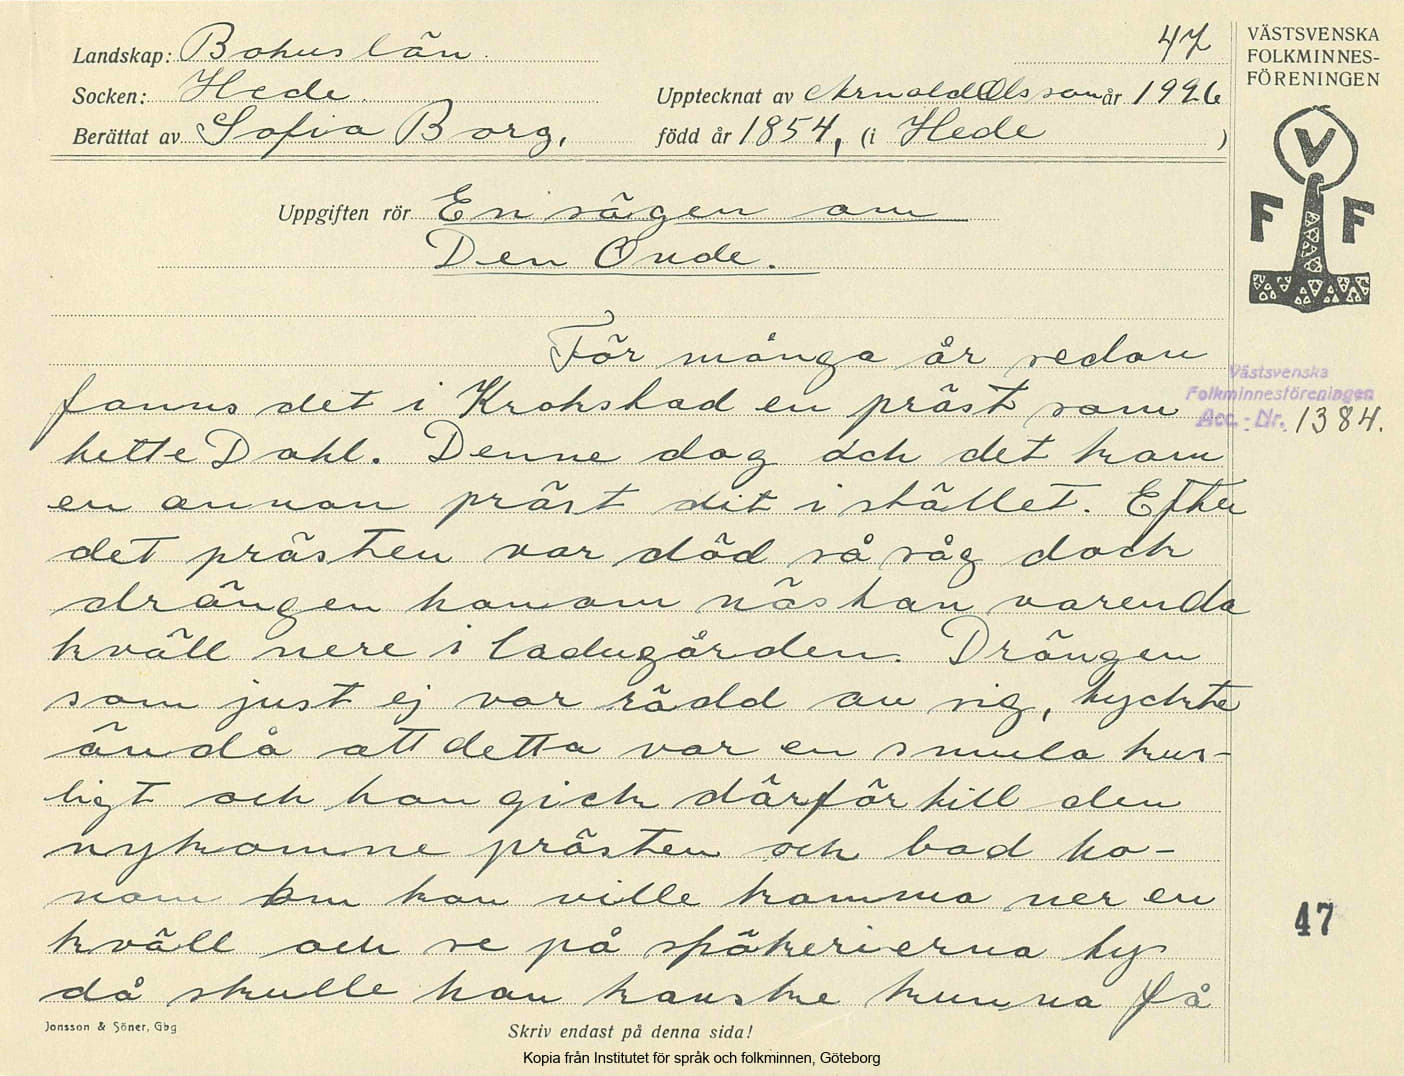 Landskap: Bohuslän.
47
VÄSTSVENSKA
FOLKMINNES-
FÖRENINGEN
Socken: Hede.
Upptecknat av Arnold Olsson år 1926
Berättat av Sofia Borg,
född år 1854, (i Hede )
V
F F
Uppgiften rör En sägen om
Den Onde.
För många år sedan
fanns det i Krokstad en präst som
hette Dahl. Denne dog och det kom
en annan präst dit i stället. Efter
det prästen var död så såg dock
drängen honom nästan varenda
kväll nere i ladugården. Drängen
som just ej var rädd av sig, tyckte
ändå att detta var en smula kus-
ligt och han gick därför till den
nykomne prästen och bad ho-
nom om han ville komma ner en
kväll och se på spökerierna ty
då skulle han kanske kunna få
Västsvenska
Folkminnesföreningen
Acc. - Nr. 1384.
47
Jonsson & Söner, Gbg
Skriv endast på denna sida!
Kopia från Institutet för språk och folkminnen, Göteborg